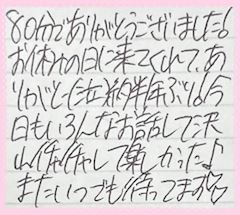 80分でありがとうございました!
お休みの日に来てくれて、あ
りがとに泣 約半年ぶり 今
日もいろんなお話して沢
山イチャイチャして楽しかった♪
またいつでも待ってまする